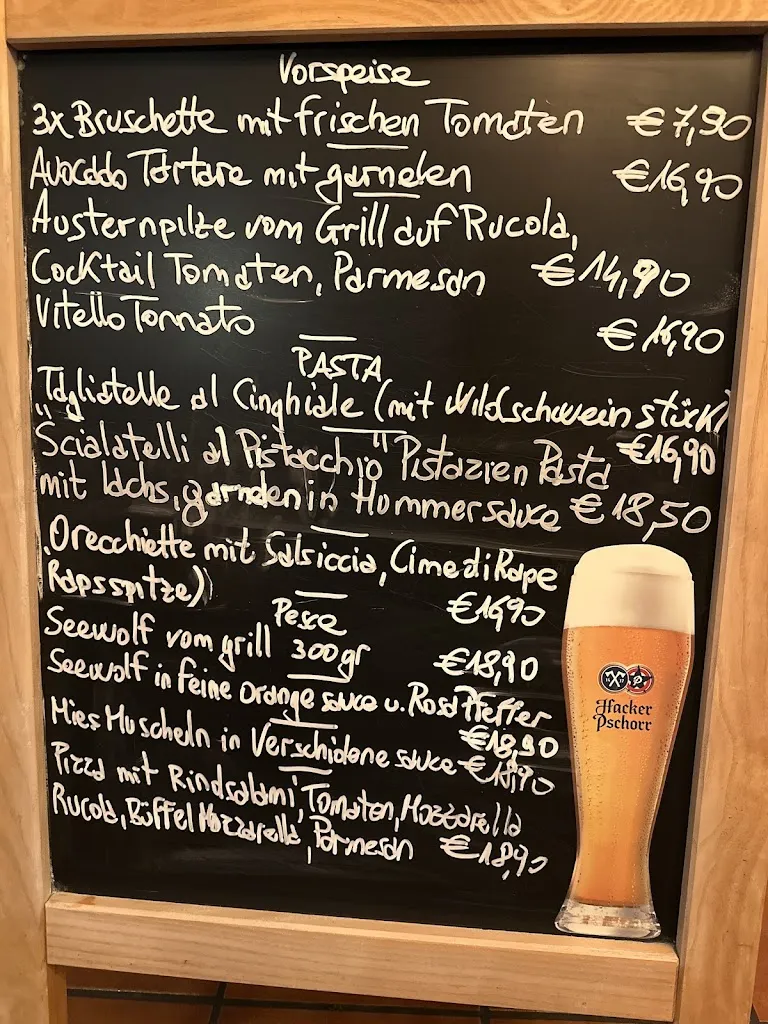 Vorspeise
3x Bruschette mit frischen Tomaten €7,90
Avocado Tartare mit garnelen €16,90
Austernpilze vom Grill auf Rucola,
Cocktail Tomaten, Parmesan €14,90
Vitello Tonnato €16,90
PASTA
Tagliatelle al Cinghiale (mit Wildschwein stück)
€16,90
"Scialatelli al Pistacchio" Pistazien Pasta
mit lachs, garnelen in Hummersauce €18,50
Orecchiette mit Salsiccia, Cime di Rape
Rapsspitze) €16,90
Pesce
Seewolf vom grill 300gr €18,90
Seewolf in feine orange sauce u. Rosa Pfeffer
€18,90
Mies Muscheln in Verschidene sauce €18,90
Pizza mit Rindsalami, Tomaten, Mozzarella
Rucola, Büffel Mozzarella, Parmesan €18,90
Hacker
Pschorr